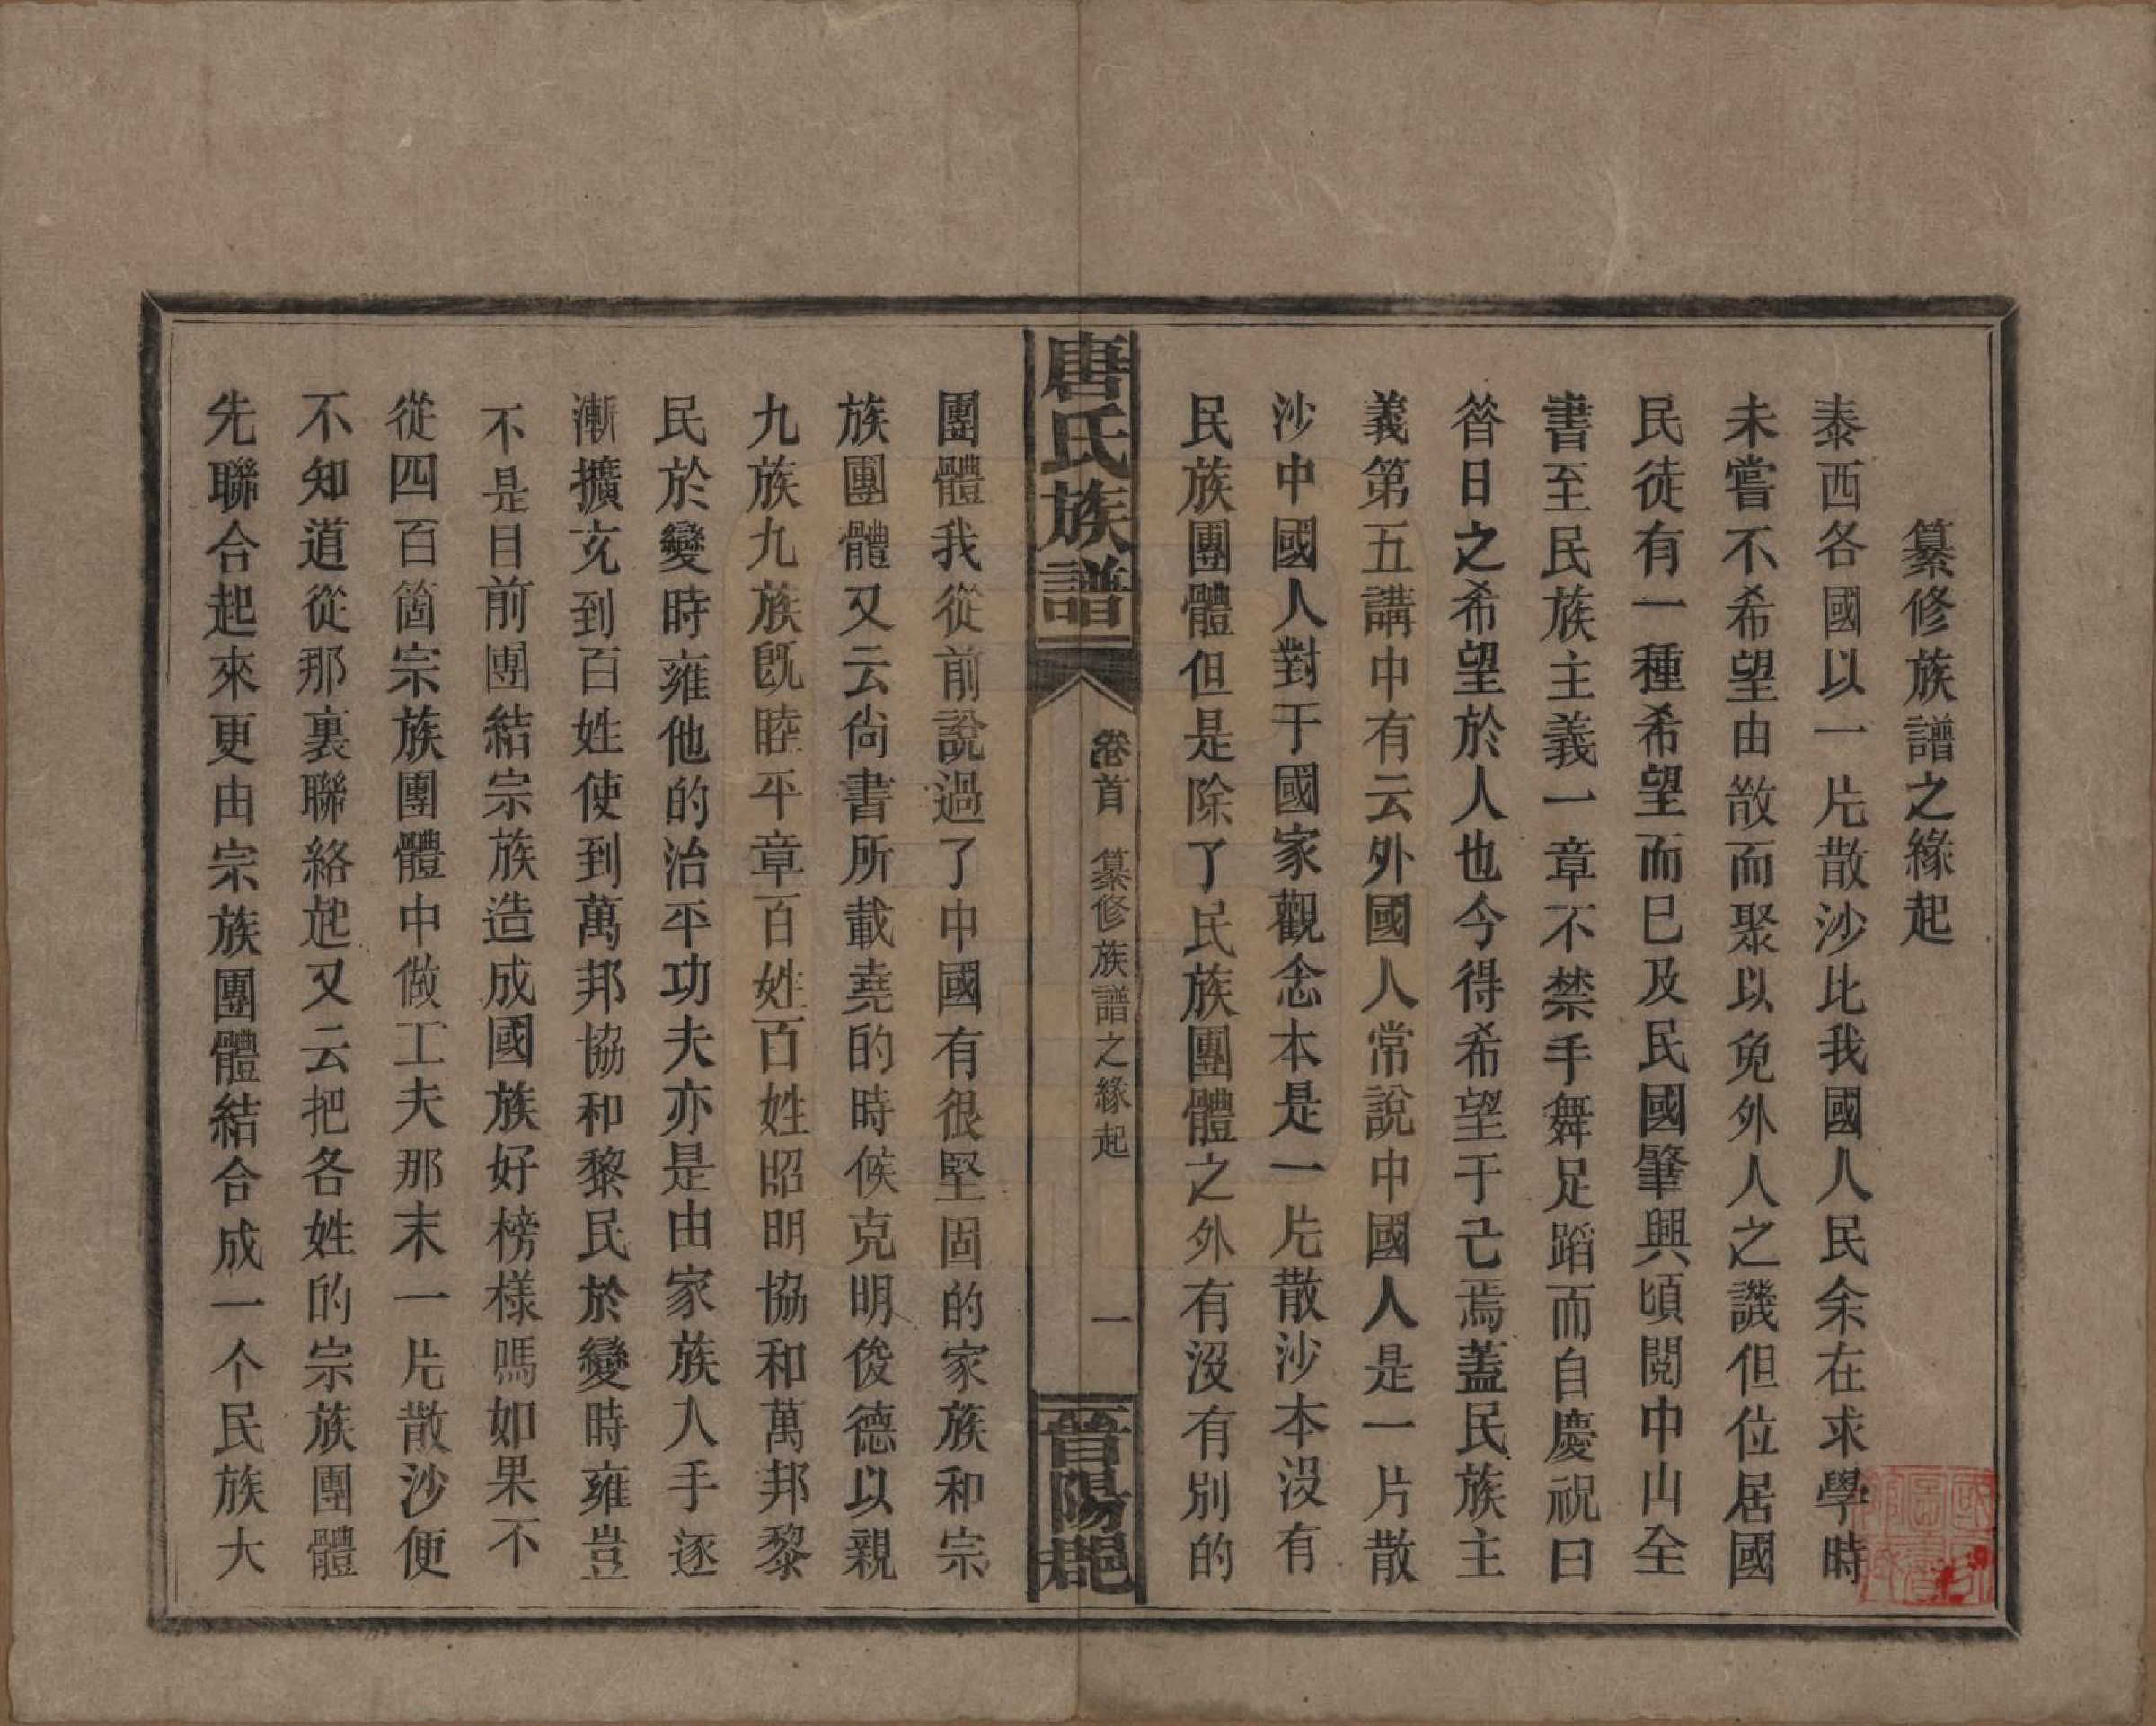 纂修族譜之緣起
泰西各國以一片散沙比我國人民余在求學時
未嘗不希望由散而聚以免外人之譏但位居國
民徒有一種希望而已及民國肇興頃閱中山全
書至民族主義一章不禁手舞足蹈而自慶祝曰
昝日之希望於人也今得希望于己焉蓋民族主
義第五講中有云外國人常說中國人是一片散
沙中國人對于國家觀念本是一片散沙本沒有
民族團體但是除了民族團體之外有沒有別的
唐氏族譜
卷首 纂修族譜之緣起 一
晉陽郡
團體我從前說過了中國有很堅固的家族和宗
族團體又云尙書所載堯的時候克明俊德以親
九族九族旣睦平章百姓百姓昭明協和萬邦黎
民於變時雍他的治平功夫亦是由家族入手逐
漸擴充到百姓使到萬邦協和黎民於變時雍豈
不是目前團結宗族造成國族好榜樣嗎如果不
從四百箇宗族團體中做工夫那末一片散沙便
不知道從那裏聯絡起又云把各姓的宗族團體
先聯合起來更由宗族團體結合成一个民族大